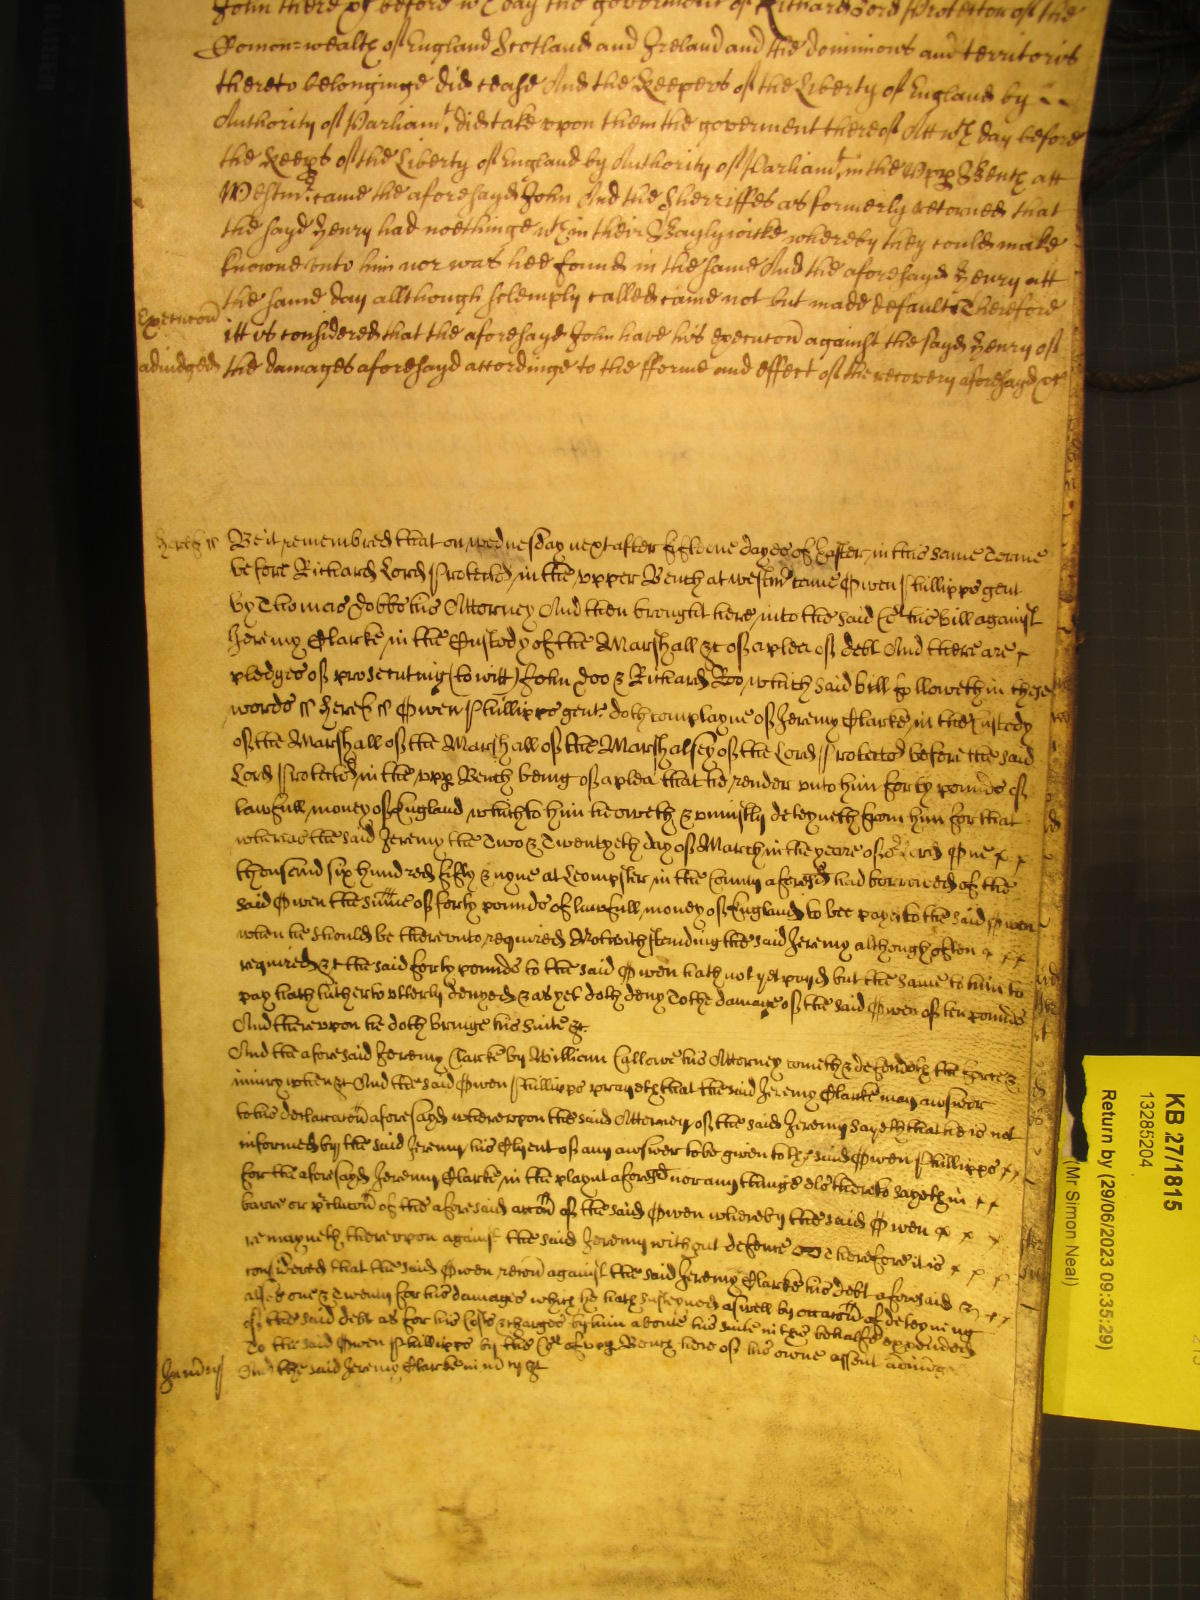 John there of before wch day the goverment of Richard Lord Protector of the
Comon=wealth of England Scotland and Ireland and the dominions and territories
thereto belonginge did cease And the Keepers of the Liberty of England by
Authority of Parliamt. did take upon them the goverment thereof Att wch day before
the Keeprs of the Liberty of England by Authority of Parliamt. in the Uppr Bench att
Westmr. came the aforesayd John And the Sherriffes as formerly retorned that
the sayd Henry had noethinge wthin their Baylywicke whereby they could make
knowne unto him nor was hee found in the same And the aforesayd Henry att
the same day allthough solemply called came not but made default Therefore
Execucon
itt is considered that the aforesayd John have his execucon against the sayd Henry of
adiudged
the damages aforesayd accordinge to the fforme and effect of the recovery aforesayd &c
Heref ss
Be it remembred that on wednesday next after fifteene dayes of Easter in this same Terme
before Richard Lord Protector in the upper Bench at westmr came Owen Phillipps gent
by Thomas Dobbs his Attorney And then brought here into the said Crt his bill against
Jeremy Clarke in the Custody of the Marshall &c of a plea of debt And there are
pledges of prosecuting (to witt) John Doo & Richard Roo which said bill followeth in these
words ss Heref ss Owen Phillipps gent. doth complayne of Jeremy Clarke in the Custody
of the Marshall of the Marshall of the Marshalsey of the Lord Protector before the said
Lord Protector in the uppr Bench being of a plea that he render unto him forty pounds of
lawfull money of England which to him he oweth & uniustly deteyneth from him for that
whereas the said Jeremy the Two & Twentyeth day of March in the yeare of or Lord One
thousand six hundred fifty & nyne at Leompster in the County aforesd had borrowed of the
said Owen the sume of forty pounds of lawfull money of England to bee payd to the said Owen
when he should be thereunto required Notwithstanding the said Jeremy although often
required &c the said forty pounds to the said Owen hath not yet payd but the same to him to
pay hath hitherto utterly denyed & as yet doth deny To the damage of the said Owen of ten pounds
And thereupon he doth bringe his suite &c.
And the aforesaid Jeremy Clarke by William Callowe his Attorney cometh & defendeth the force &
iniury when &c And the said Owen Phillipps prayeth that the said Jeremy Clarke may answer
to his declaracon aforesayd whereupon the said Attorney of the said Jeremy sayeth that he is not
informed by the said Jeremy his Clyent of any answer to be given to the said Owen Phillipps
for the aforesayd Jeremy Clarke in the playnt aforesd nor any thinge els thereto sayeth in
barre or preclucon of the aforesaid accon of the said Owen whereby the said Owen
remayneth thereupon against the said Jeremy without defence Therefore it is
considered that the said Owen recovr against the said Jeremy Clarke his debt aforesaid &
alsoe one & Twenty for his damages which he hath susteyned aswell by occacon of deteyneng
of the said debt as for his Costs & charges by him aboute his suite in this behalfe expended
To the said Owen Phillipps by the Crt of uppr Bench here of his owne assent adiudg
And the said Jeremy Clarke in mercy &c
KB 27/1815
13285204
Return by (29/06/2023 09:35:29)
(Mr Simon Neal)